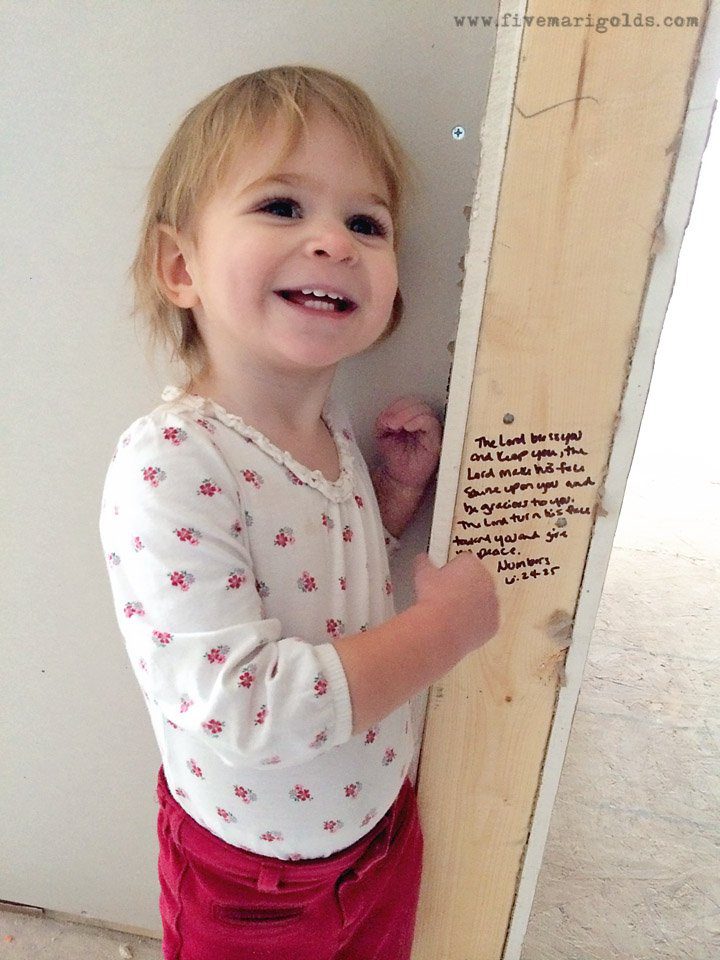 www.fivemarigolds.com
The Lord bless you
and keep you, the
Lord make his face
shine upon you and
be gracious to you.
The Lord turn his face
toward you and give
peace.
Numbers
6:24-25